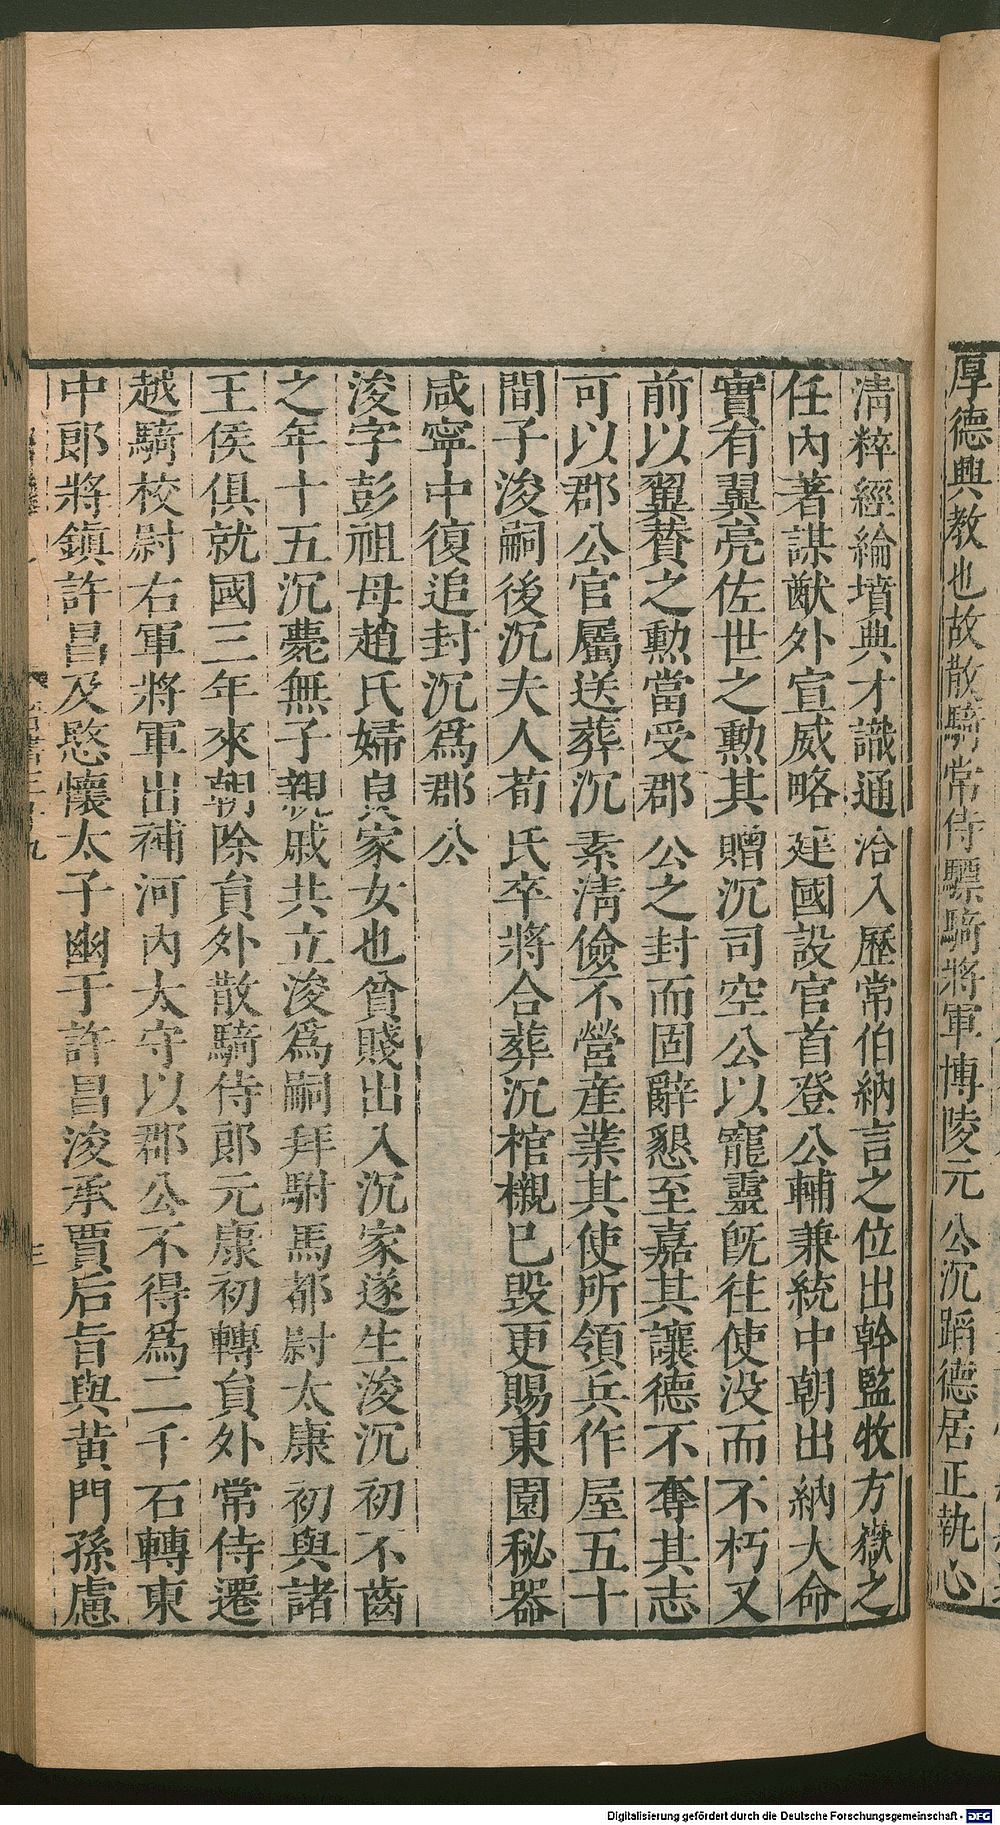 厚德興教也故散騎常侍驃騎將軍博陵元公沉蹈德居正執心
清粹經綸墳典才識通洽入歷常伯納言之位出幹監牧方嶽之
任內著謀猷外宣威略建國設官首登公輔兼統中朝出納大命
實有翼亮佐世之勲其贈沉司空公以寵靈旣往使没而不朽又
前以翼賛之勲當受郡公之封而固辭懇至嘉其讓德不奪其志
可以郡公官屬送葬沉素清儉不營産業其使所領兵作屋五十
間子浚嗣後沉夫人荀氏卒將合葬沉棺櫬已毀更賜東園秘器
咸寧中復追封沉爲郡公
浚字彭祖母趙氏婦良家女也貧賤出入沉家遂生浚沉初不齒
之年十五沉薨無子親戚共立浚爲嗣拜駙馬都尉太康初與諸
王侯俱就國三年來朝除貟外散騎侍郎元康初轉貟外常侍遷
越騎校尉右軍將軍出補河內太守以郡公不得爲二千石轉東
中郎將鎮許昌及愍懷太子幽于許昌浚承賈后旨與黄門孫慮
三
Digitalisierung gefördert durch die Deutsche Forschungsgemeinschaft - DFG